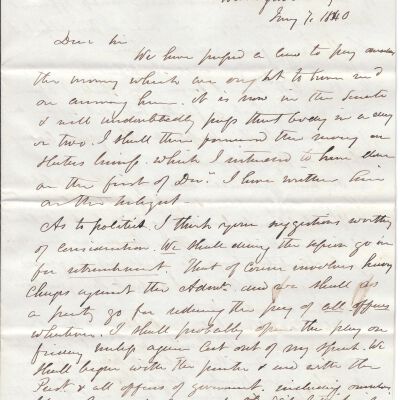 Jany 7. 1840
Dear Sir
We have passed a law to pay
the money which we ought to have rec'd
on arriving here. it is now in the Senate
& will undoubtedly pass that body in a day
or two. I shall then forward the money on
which I intended to have done
on the first of Decr. I have written him
on the subject.
As to politics I think your suggestions worthy
of consideration. We shall during the session go in
for retrenchment. That of course involves heavy
charges against the Admn. and we shall as
a party go for reducing the pay of all officers
whatever. I shall probably open the play on
again out of my speech. We
shall begin with the and with the
Prest & all officers of government, including ourselves